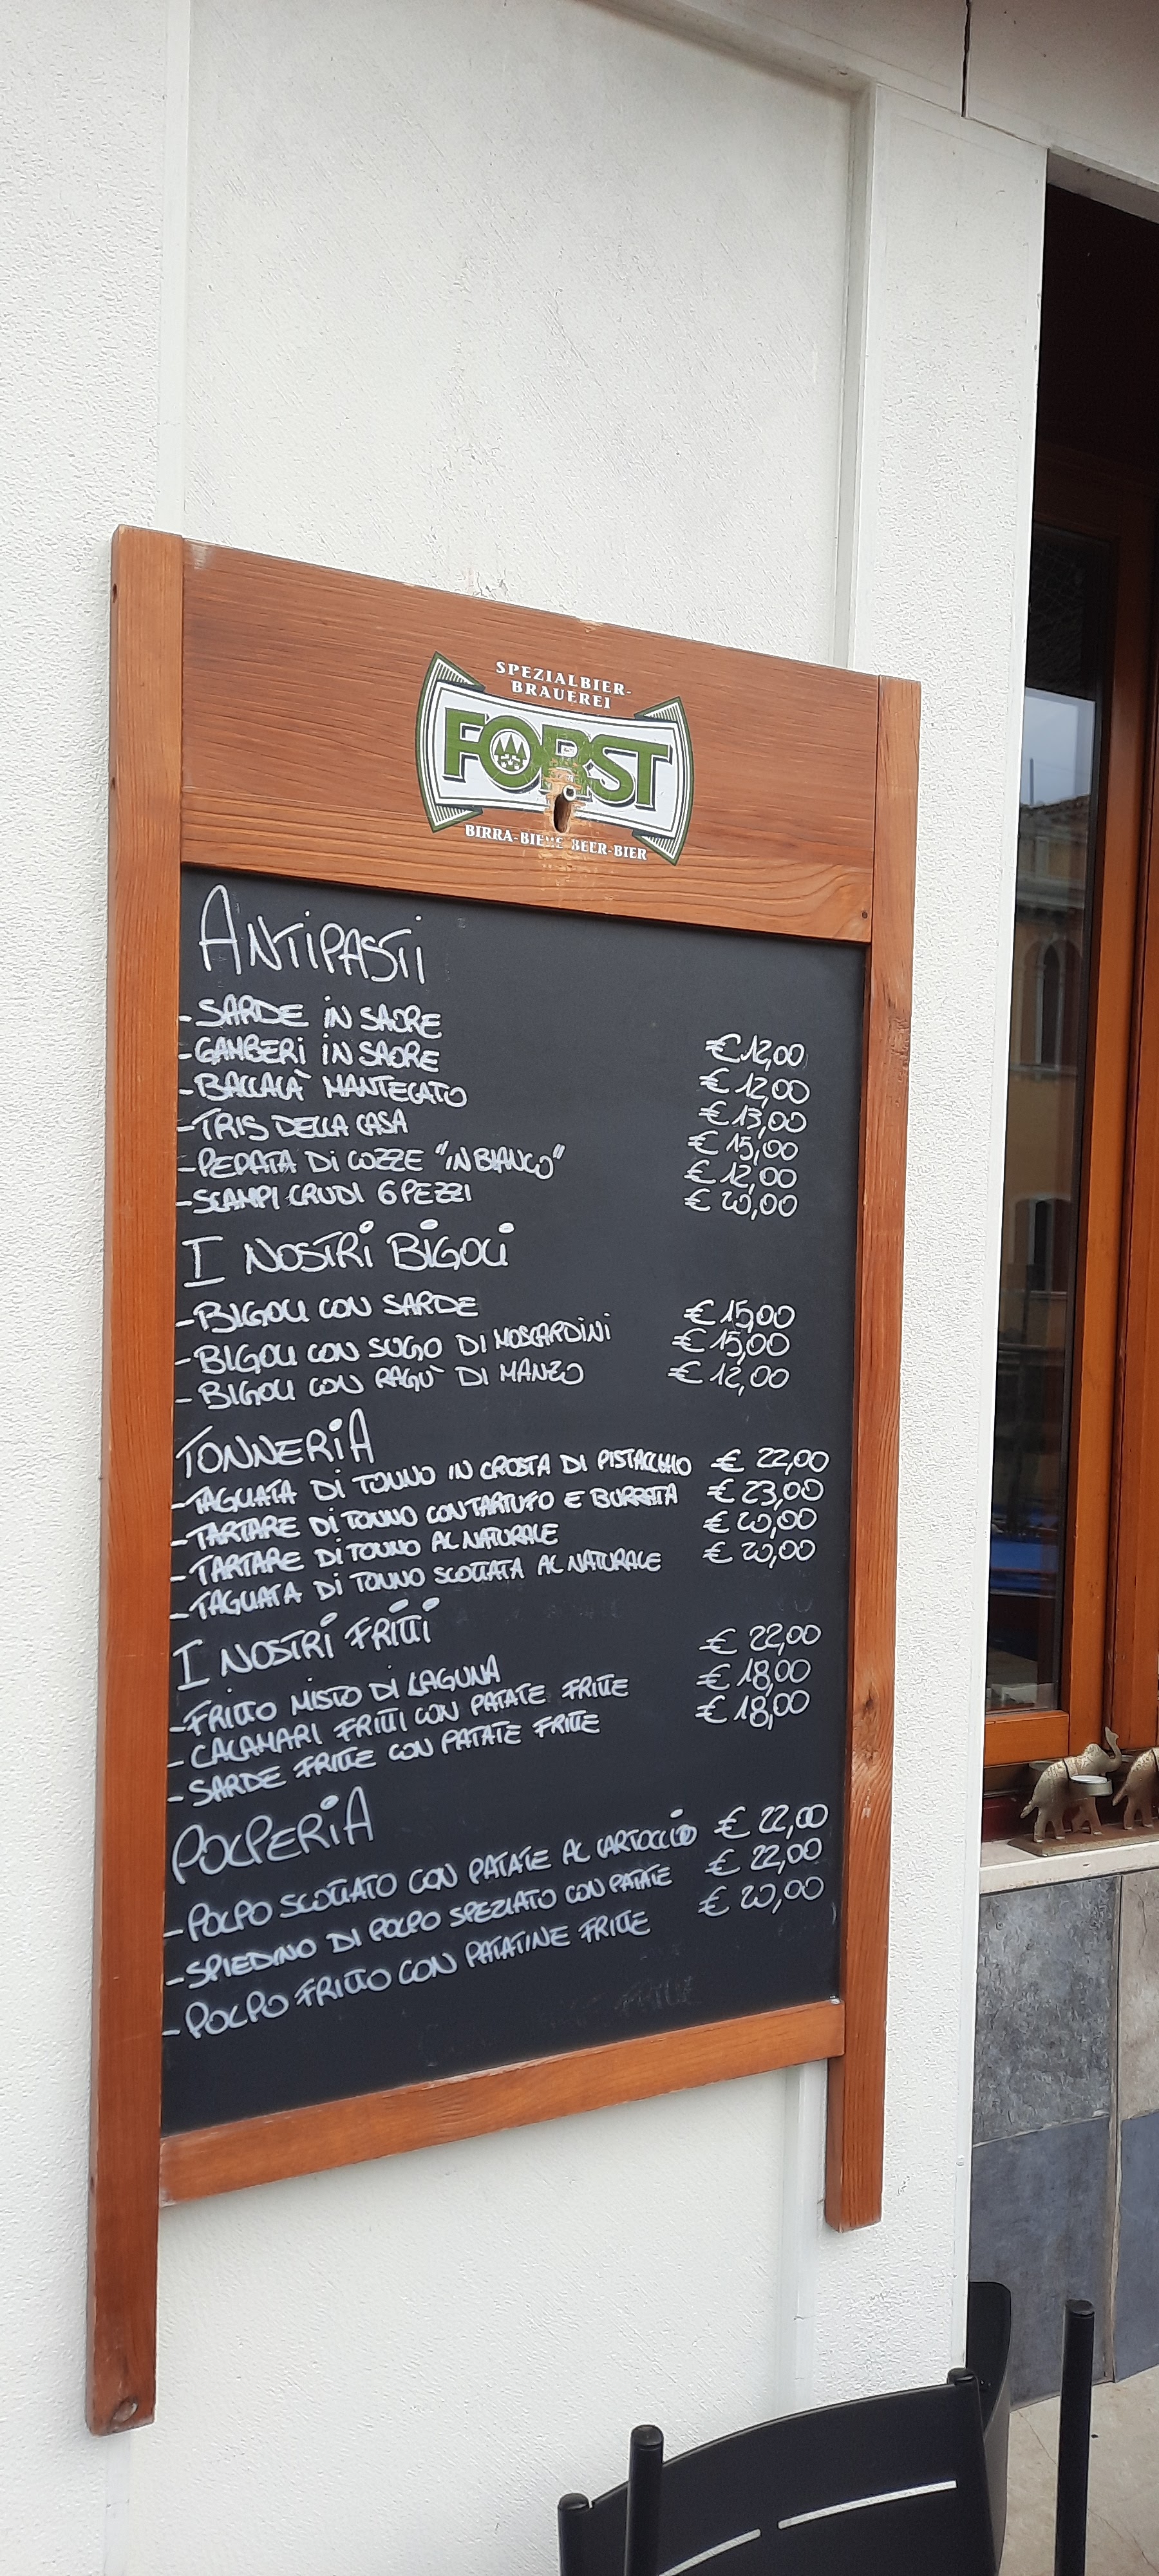 SPEZIALBIER-
BRAUEREI
FORST
BIRRA-BIERE BEER-BIER
ANTIPASTI
- SARDE IN SAORE € 12,00
- GAMBERI IN SAORE € 12,00
- BACCALÀ MANTECATO € 13,00
- TRIS DELLA CASA € 15,00
- PEPATA DI COZZE "IN BIANCO" € 12,00
- SCAMPI CRUDI 6 PEZZI € 20,00
I NOSTRI BIGOLI
- BIGOLI CON SARDE € 15,00
- BIGOLI CON SUGO DI MOSCARDINI € 15,00
- BIGOLI CON RAGU' DI MANZO € 12,00
TONNERIA
- TAGLIATA DI TONNO IN CROSTA DI PISTACCHIO € 22,00
- TARTARE DI TONNO CON TARTUFO E BURRATA € 23,00
- TARTARE DI TONNO AL NATURALE € 20,00
- TAGLIATA DI TONNO SCOTTATA AL NATURALE € 20,00
I NOSTRI FRITTI
- FRITTO MISTO DI LAGUNA € 22,00
- CALAMARI FRITTI CON PATATE FRITTE € 18,00
- SARDE FRITTE CON PATATE FRITTE € 18,00
POLPERIA
- POLPO SCOTTATO CON PATATE AL CARTOCCIO € 22,00
- SPIEDINO DI POLPO SPEZIATO CON PATATE € 22,00
- POLPO FRITTO CON PATATINE FRITTE € 20,00